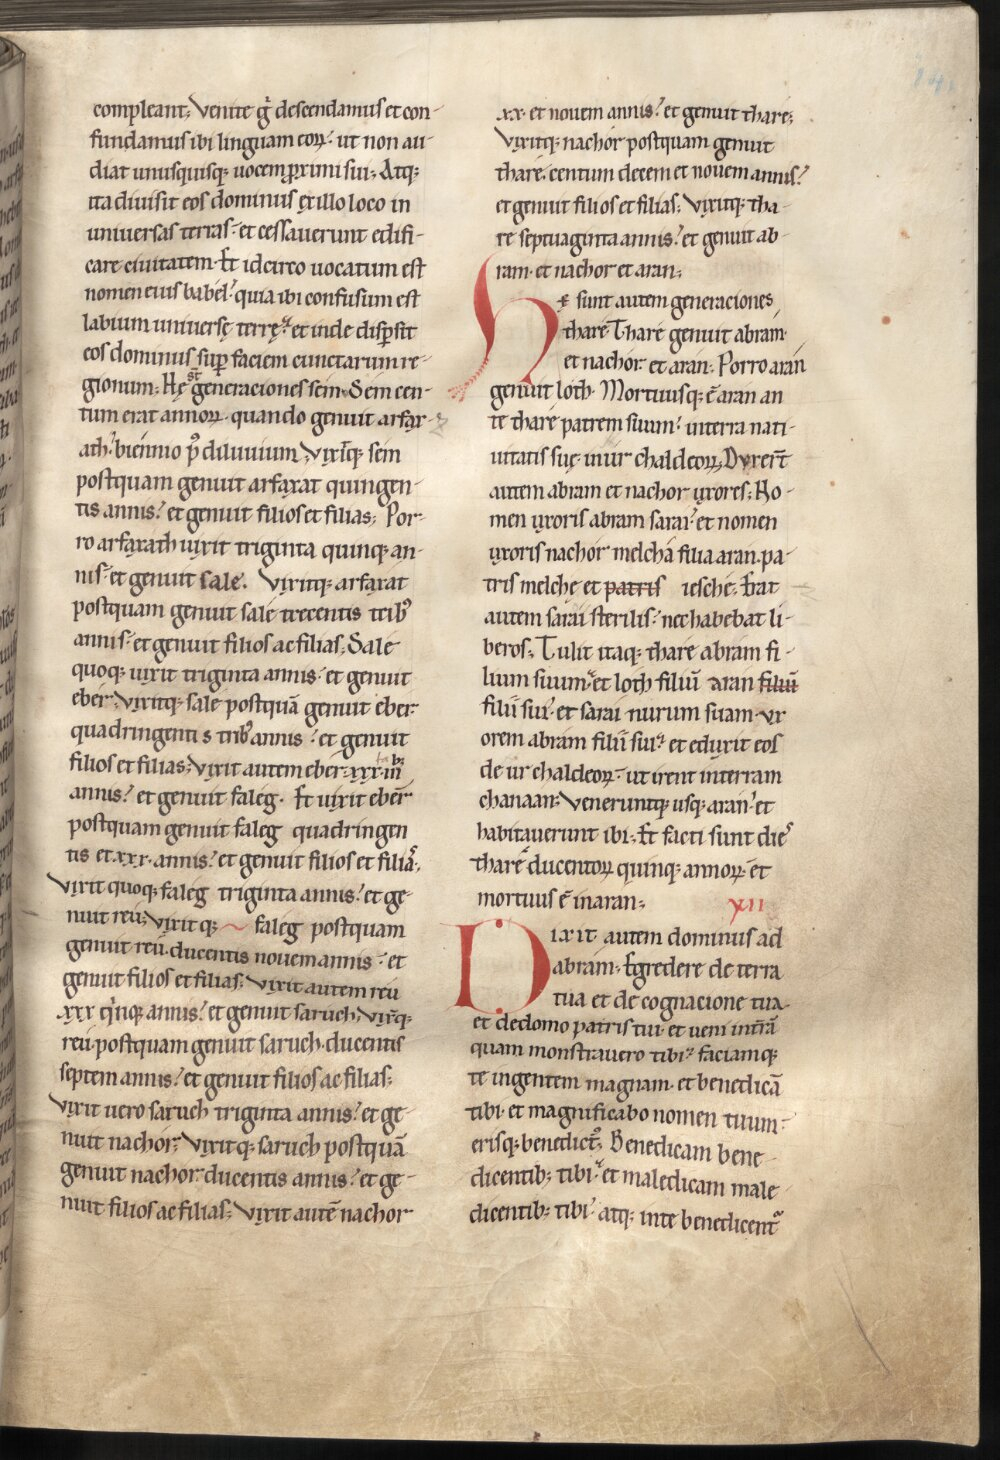 compleant; Venite g̊ descendamus et con-
fundamus ibi linguam eoꝝ. ut non au-
diat unusquisq; uocem proximi sui; Atq;
ita diuisit eos dominus ex illo loco in
uniuersas terras. et cessauerunt edifi-
care ciuitatem. Et idcirco uocatum est
nomen eius babel. quia ibi confusum est
labium uniuersę terrę. et inde dispsit
eos dominus sup faciem cunctarum re-
gionum; Hę s̄t generaciones sem. Sem cen-
tum erat annoꝝ. quando genuit arfax-
ath. biennio p̓ diluuium. Vixitq; sem
postquam genuit arfaxat quingen-
tis annis. et genuit filios et filias; Por-
ro arfaxath uixit triginta quinq; an-
nis. et genuit sale. Vixitq; arfaxat
postquam genuit sale trecentis tribꝰ
annis. et genuit filios ac filias; Sale
quoq; uixit triginta annis. et genuit
eber. Vixitq; sale postquā genuit eber.
quadringentis tribꝰ annis. et genuit
filios et filias; Vixit autem eber. xxx. iiii
annis. et genuit faleg. Et uixit eber
postquam genuit faleg quadringen
tis et xxx. annis. et genuit filios et filia;
Vixit quoq; faleg triginta annis. et ge-
nuit reu; Vixit q; faleg postquam
genuit reu. ducentis nouem annis. et
genuit filios et filias; Vixit autem reu
xxx q̇nq; annis. et genuit saruch. Vixq;
reu. postquam genuit saruch. ducentis
septem annis. et genuit filios ac filias;
Vixit uero saruch triginta annis. et ge-
nuit nachor; Vixitq; saruch postquā
genuit nachor. ducentis annis. et ge-
nuit filios ac filias; Vixit autē nachor
xx. et nouem annis. et genuit thare;
Vixitq; nachor postquam genuit
thare. centum decem et nouem annis.
et genuit filios et filias; Vixitq; tha-
re septuaginta annis. et genuit ab-
ram. et nachor et aran;
Hę sunt autem generaciones
thare. Thare genuit abram.
et nachor. et aran. Porro aran
genuit loth. Mortuusq; ē aran an
te thare patrem suum. in terra nati-
uitatis suę. in ur chaldeoꝝ; Duxer̄t
autem abram et nachor uxores; No-
men uxoris abram sarai. et nomen
uxoris nachor melcha filia aran. pa-
tris melchę et patris iesche; Erat
autem sarai sterilis. nec habebat li-
beros; Tulit itaq; thare abram fi-
lium suum. et loth filiū aran filiū
filii sui. et sarai nurum suam. ux
orem abram filii sui. et eduxit eos
de ur chaldeoꝝ. ut irent in terram
chanaan. Veneruntq; usq; aran. et
habitauerunt ibi; Et facti sunt dieˢ
thare ducentoꝝ quinq; annoꝝ. et
mortuus ē in aran;
XII
Dixit autem dominus ad
abram. Egredere de terra
tua et de cognacione tua.
et de domo patris tui. et ueni in t̄rā
quam monstrauero tibi. faciamq;
te in gentem magnam. et benedicā
tibi. et magnificabo nomen tuum.
erisq; benedictꝰ. Benedicam bene-
dicentib; tibi. et maledicam male-
dicentib; tibi. atq; in te benedicent᷑